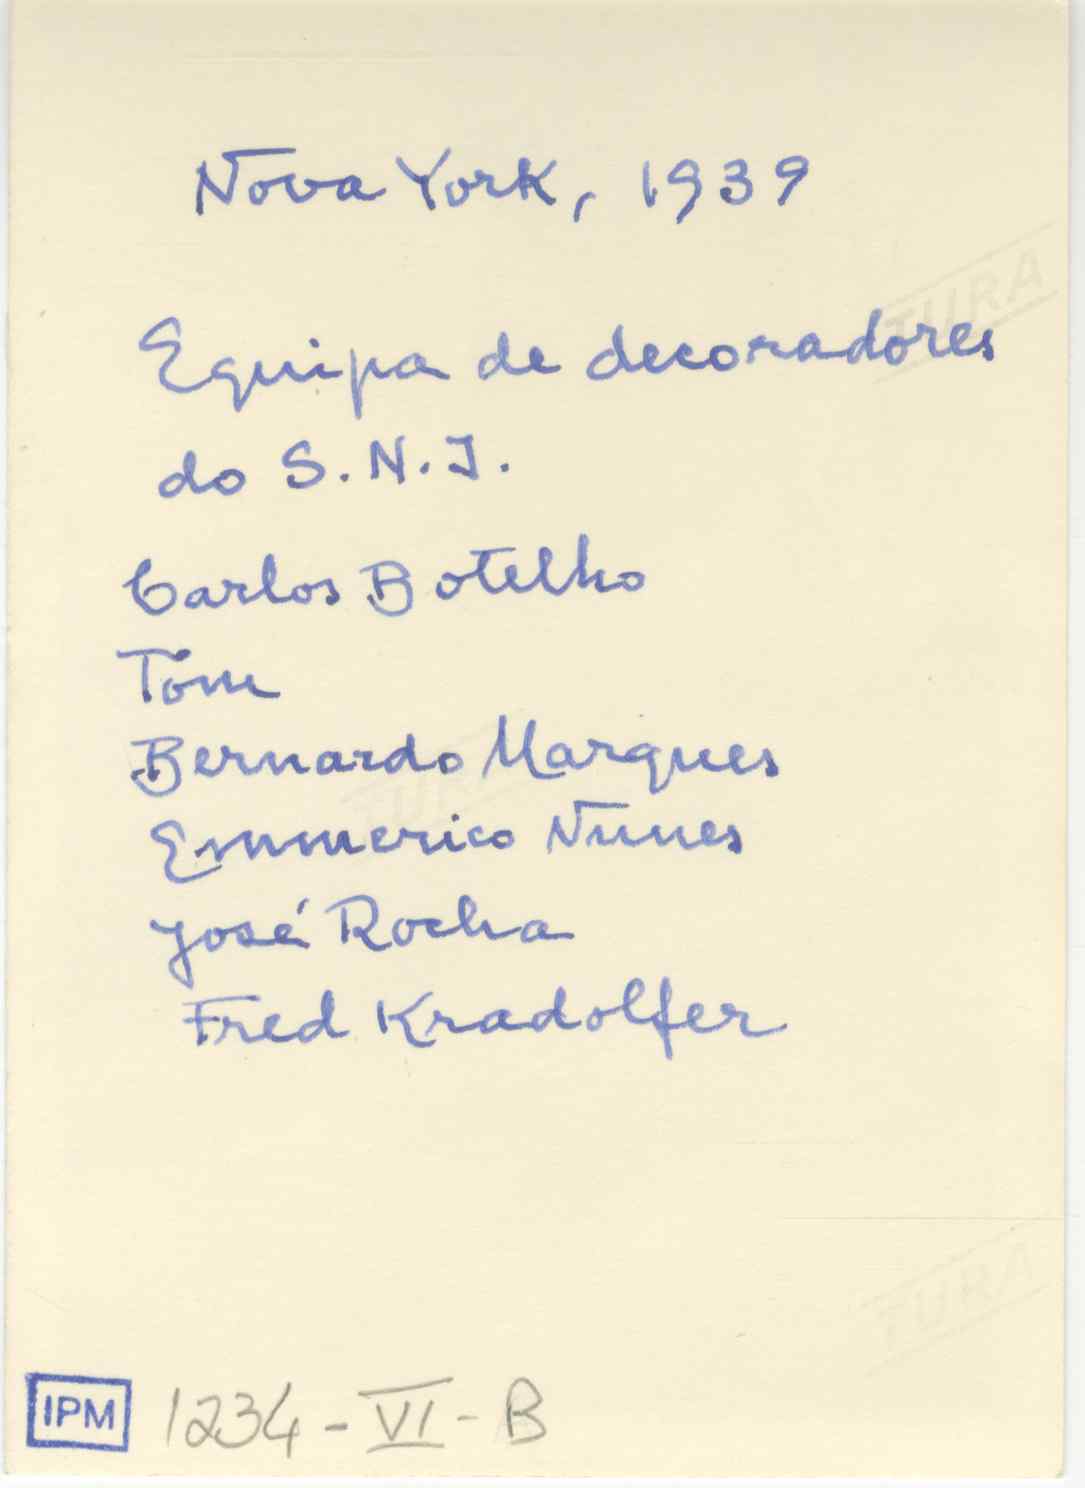 Nova York, 1939
TURA
Equipa de decoradores
do S.N.I.
Carlos Botelho
Tom
Bernardo Marques
TURA
Emmerico Nunes
José Rocha
Fred Kradolfer
TURA
IPM 1234-VI-B